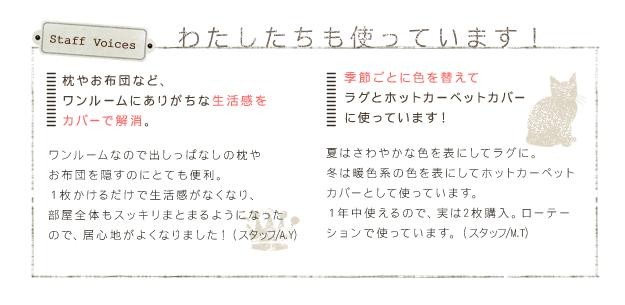 Staff Voices
わたしたちも使っています！
枕やお布団など、
ワンルームにありがちな生活感を
カバーで解消。
ワンルームなので出しっぱなしの枕や
お布団を隠すのにとても便利。
1枚かけるだけで生活感がなくなり、
部屋全体もスッキリまとまるようになった
ので、居心地がよくなりました！（スタッフ/A.Y）
季節ごとに色を替えて
ラグとホットカーペットカバー
に使っています！
夏はさわやかな色を表にしてラグに。
冬は暖色系の色を表にしてホットカーペット
カバーとして使っています。
1年中使えるので、実は2枚購入。ローテー
ションで使っています。（スタッフ/M.T）